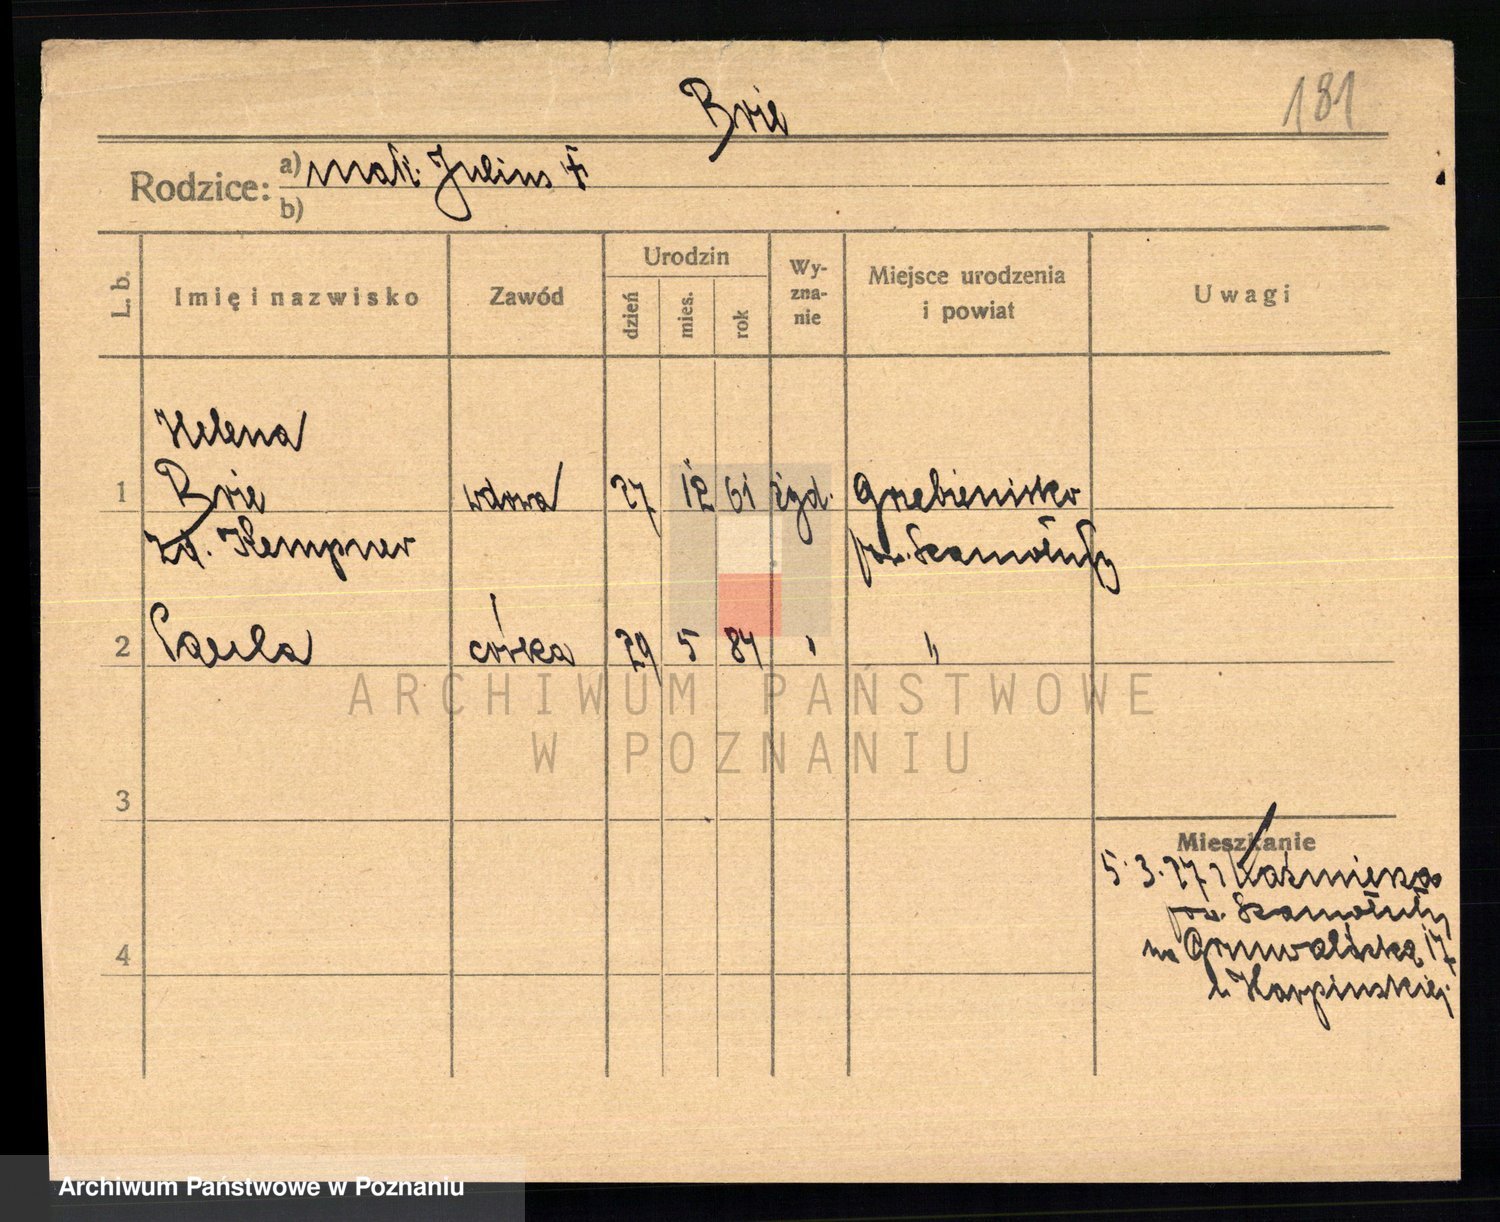 Brie
181
Rodzice: a) małż. Julius †
b)
L. b. Imię i nazwisko Zawód Urodzin dzień mies. rok Wy-zna-nie Miejsce urodzenia i powiat Uwagi
Helena
1 Brie wdowa 27 12 61 żyd. Grzebienisko
zd. Kempner pow. Szamotuły
2 Paula córka 29 5 84 " "
ARCHIWUM PAŃSTWOWE
W POZNANIU
3
Mieszkanie
5. 3. 27 z Kaźmierza
pow. Szamotuły
4 na Grunwaldzką 17
u Karpińskiej
Archiwum Państwowe w Poznaniu